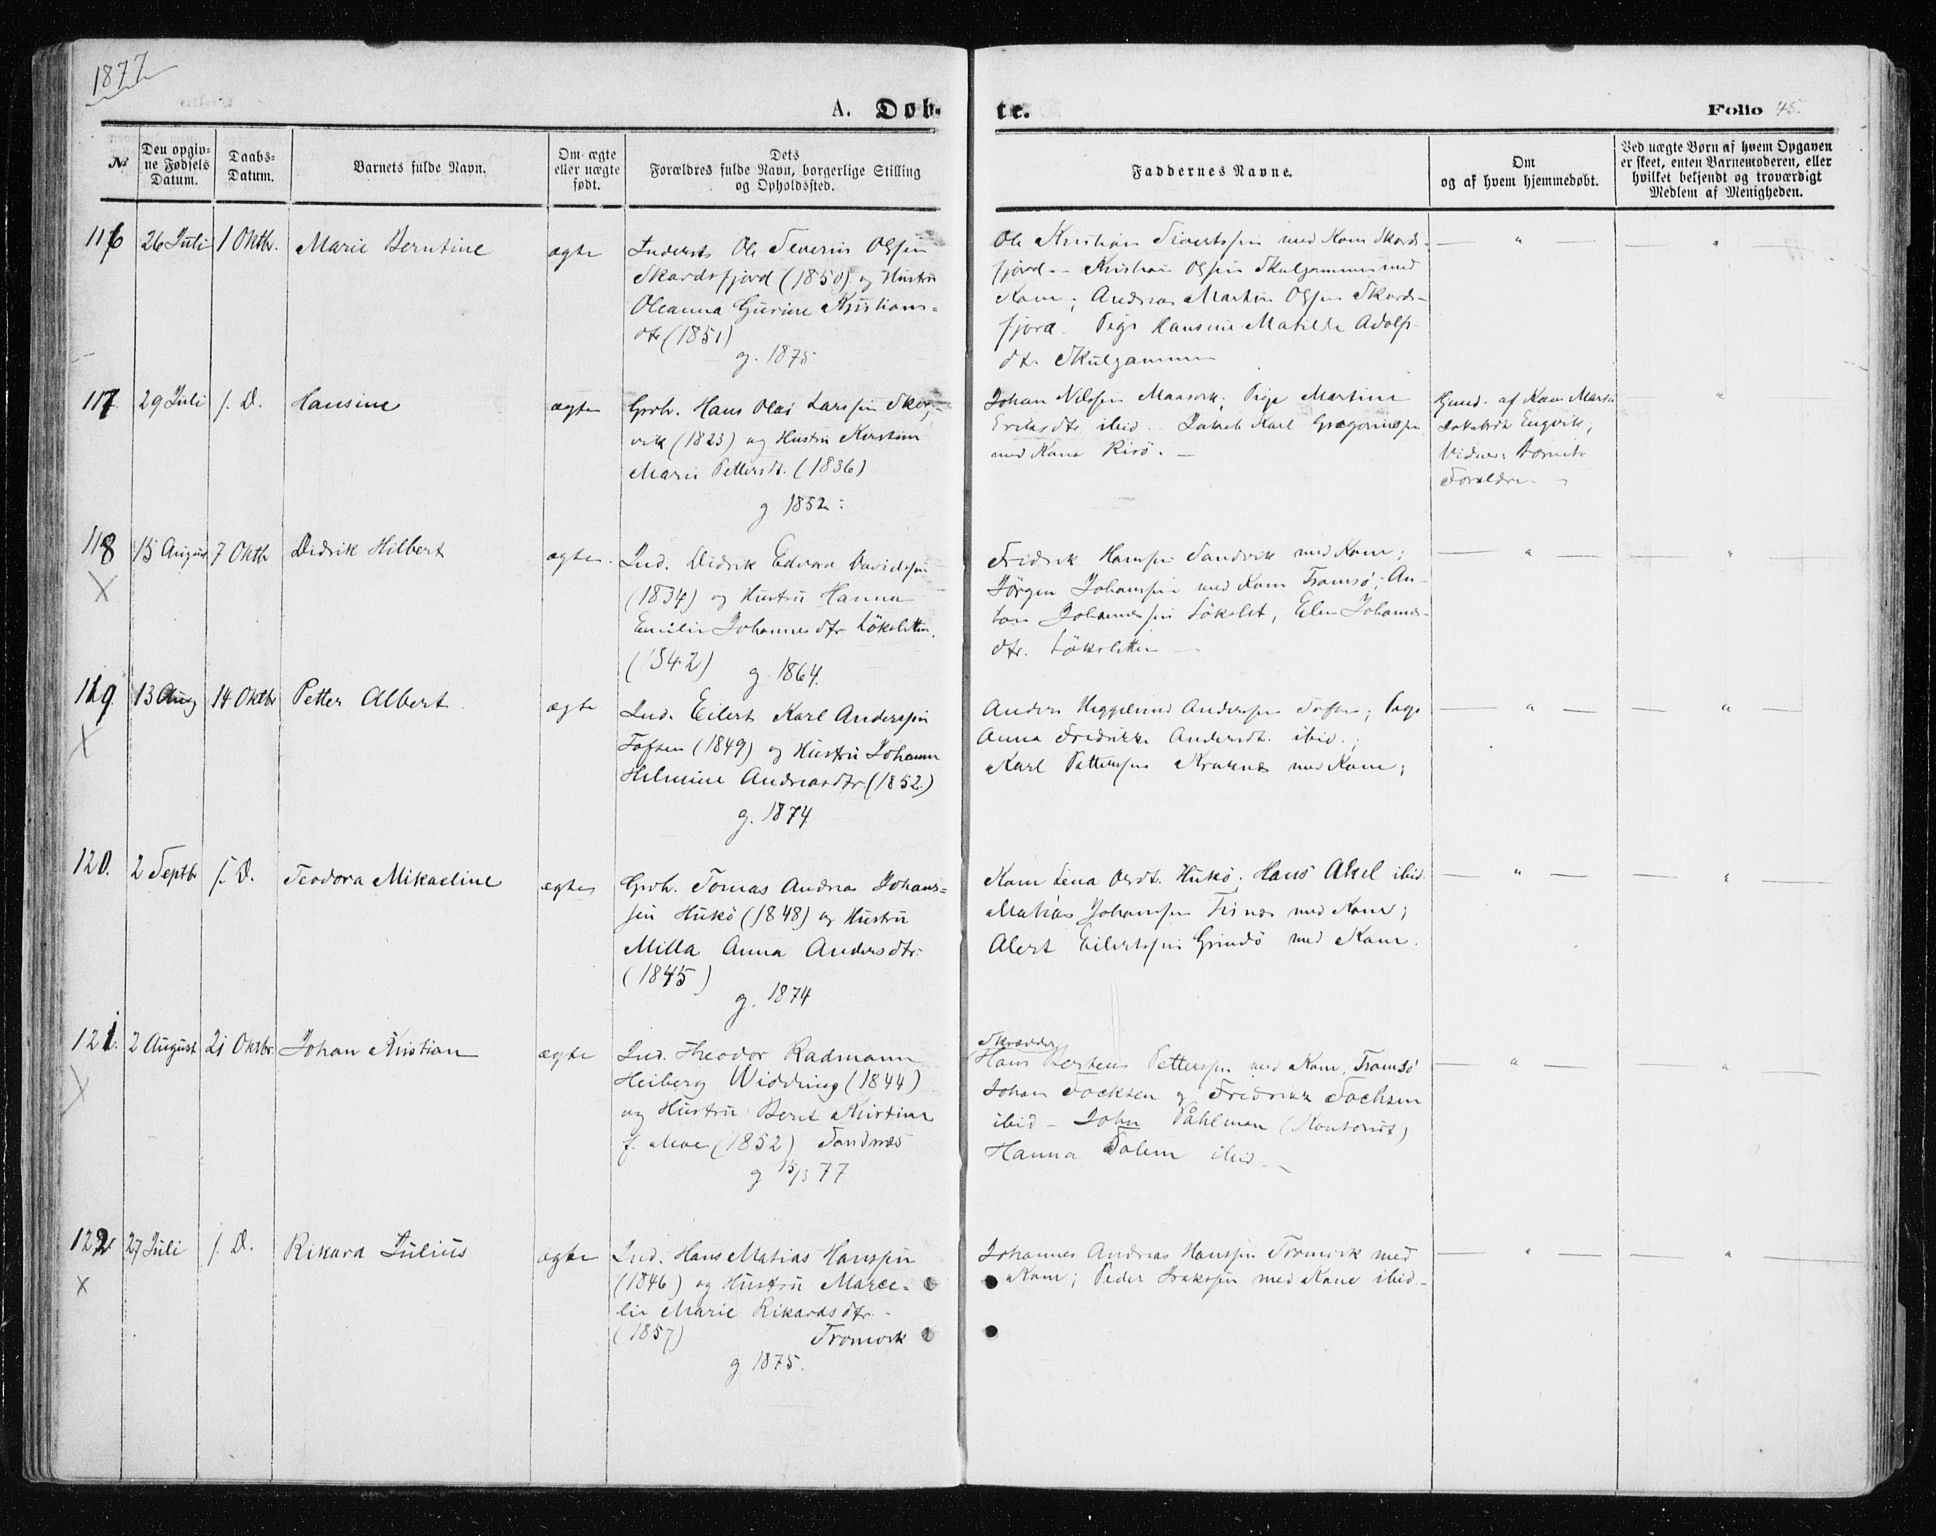 1877
A. Døb-
te.
Folio 45.
№
Den opgiv-
ne Fødsels
Datum.
Daabs-
Datum.
Barnets fulde Navn.
Om ægte
eller uægte
født.
Dets
Forældres fulde Navn, borgerlige Stilling
og Opholdssted.
Faddernes Navne.
Om
og af hvem hjemmedøbt.
Ved uægte Børn af hvem Opgaven
er skeet, enten Barnemoderen, eller
hvilket bekjendt og troværdigt
Medlem af Menigheden.
116 26 Juli 1 Oktbr. Marie Berntine ægte
Inderst Ole Severin Olsen
Skardsfjord (1850) og Hustru
Oleanna Gurine Kristians-
dtr (1851)
g. 1875
Ole Kristian Sivertsen med Kone Skards-
fjord - Kristian Olsen Skulgammen med
Kone; Andreas Martin Olsen Skards-
fjord. Pige Hansine Matilde Adolfs-
dt. Skulgammen
117. 29 Juli s. D. Hansine ægte
Grbr. Hans Olai Larssen
(1823) og Hustru Kirstine
Marie Pettersdt. (1836)
g 1852:
Johan Nilssen Maasvik; Pige Martine
Eriksdtr ibid. - Jakob Karl
med Kone Risø. -
Hjmd. af Kone
Engvik,
Vidner: Barnets
Forældre. -
118 15 August 7 Oktb Didrik Hilbert ægte.
Ind. Didrik Edvard Davidsen
(1834) og Hustru Hanna
Emilie Johannesdtr Løksletten.
(1842) g. 1864.
Fridrik Hanssen Sandvik med Kone;
Jørgen Johanssen med Kone Tromsø; An-
ton Johannessen Løkslet, Elen Johannes-
dtr. Løksletten -
119. 13 Aug 14 Oktbr Petter Albert ægte
Ind. Eilert Karl Anderssen
Toften (1849) og Hustru Johanna
Helmine Andreasdtr. (1852)
g. 1874
Anders Heggelund Anderssen Toften; Pige
Anna Fredrikke Andersdt. ibid.;
Karl Petterssen Kraknes med Kone;
120. 2 Septbr s. D. Teodora Mikaeline ægte
Grbr. Tomas Andreas Johans-
sen Hukø (1848) og Hustru
Milla Anna Andersdtr.
(1845)
g. 1874
Kone Lena Olsdt. Hukø; Hans Akel ibid.
Matias Johanssen Tisnes med Kone;
Alert Eilertssen Grindø med Kone.
121. 2 August 21 Oktbr. Johan Kristian ægte
Ind. Theodor Radmann
Heiberg Widding (1844)
og Hustru Beret Kirstine
f. Moe (1852) Sandnes
g 15/3 77
Skrædder
Hans Petterssen med Kone, Tromsø
Johan Fochsen og Fredrikke Fochsen
ibid - John Påhlman (Kontorist)
Hanna ibid -
122 27 Juli s. D. Rikard Julius ægte
Ind. Hans Matias Hanssen
(1846) og Hustru Marce-
lie Marie Rikardsdtr.
(1857) Tromvik
g 1875.
Johannes Andreas Hanssen Tromvik med
Kone; Peder Isakssen med Kone ibid. -